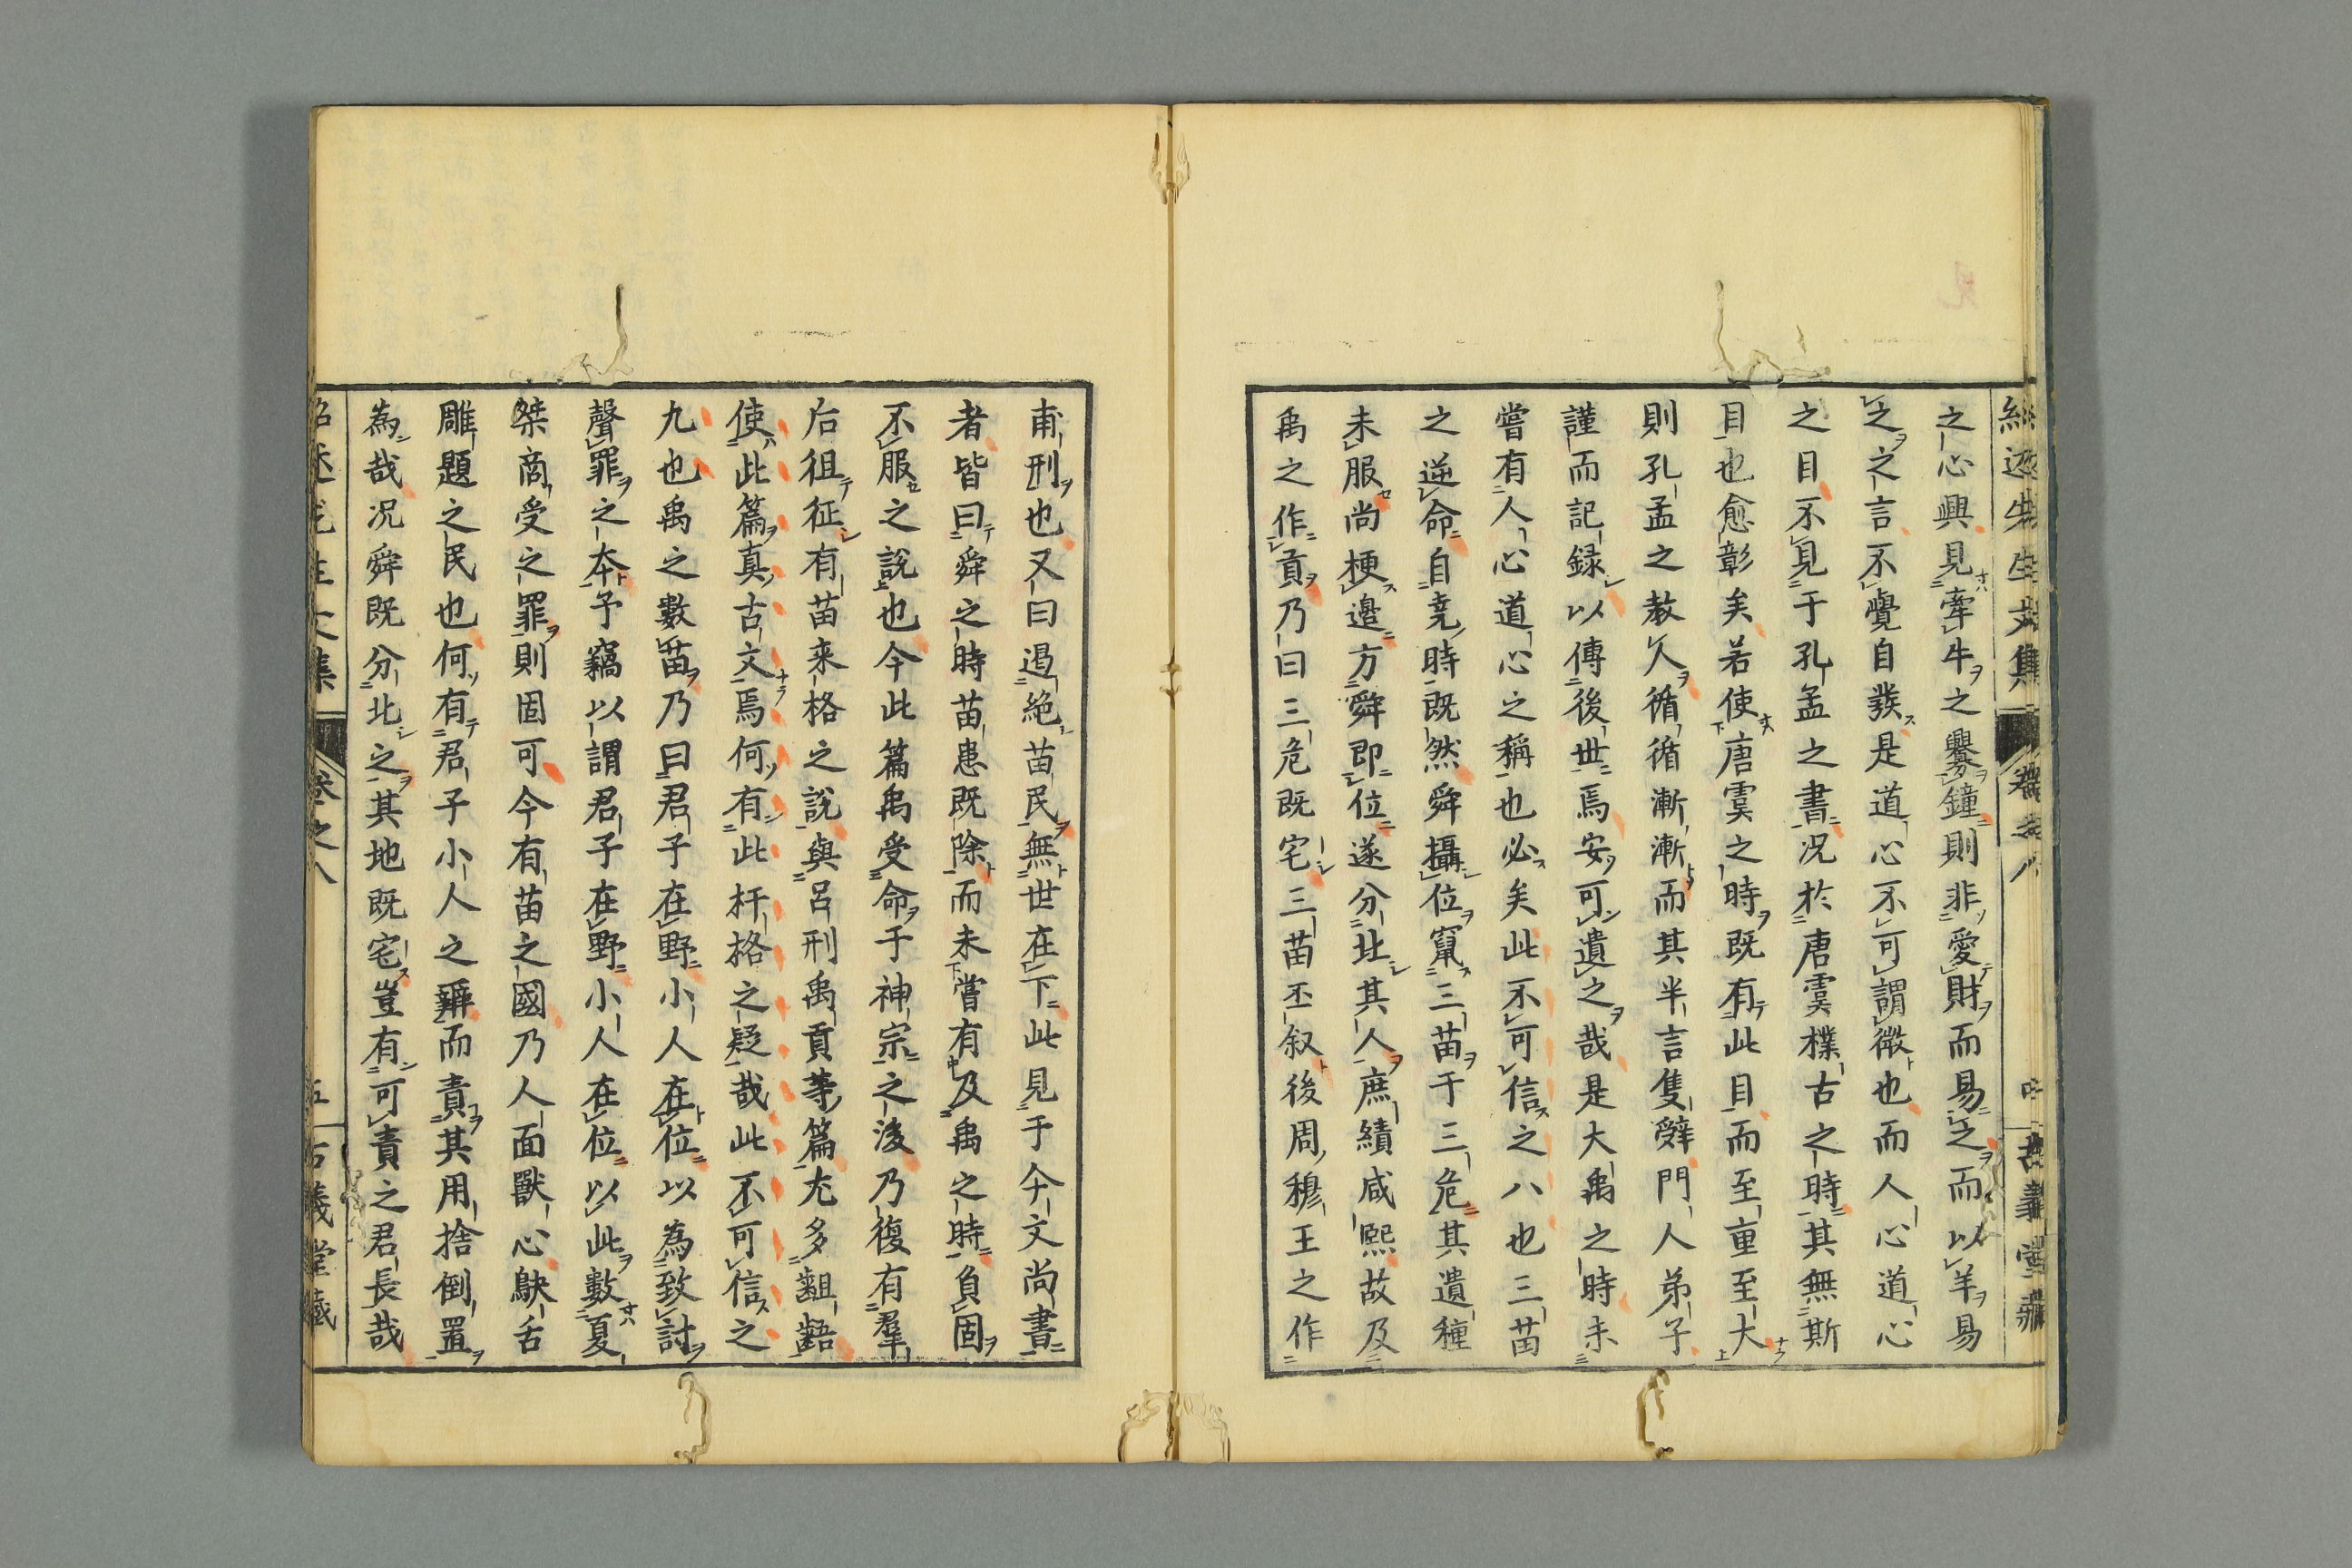 之心興見牽牛之釁鐘則非愛財而易之而以羊易
之之言不覺自發是道心不可謂微也而人心道心
之目不見于孔孟之書況於唐虞樸古之時其無斯
目也愈彰矣若使唐虞之時既有此目而至重至大
則孔孟之教人循循漸漸而其半言隻辭門人弟子
謹而記録以傳後世焉安可遺之哉是大禹之時未
嘗有人心道心之稱也必矣此不可信之八也三苗
之逆命自堯時既然舜攝位竄三苗于三危其遺種
未服尚梗邊方舜即位遂分北其人庶績咸熙故及
禹之作貢乃曰三危既宅三苗丕叙後周穆王之作
甫刑也又曰遏絶苗民無世在下此見于今文尚書
者皆曰舜之時苗患既除而未嘗有及禹之時負固
不服之說也今此篇禹受命于神宗之後乃復有羣
后徂征有苗来格之說與呂刑禹貢等篇尤多齟齬
使此篇真古文焉何有此杆格之疑哉此不可信之
九也禹之數苗乃曰君子在野小人在位以為致討
聲罪之本予竊以謂君子在野小人在位以此數夏
桀商受之罪則固可今有苗之國乃人面獸心鴃舌
雕題之民也何有君子小人之辨而責其用捨倒置
為哉況舜既分北之其地既宅豈有可責之君長哉
卷之八
古義堂藏